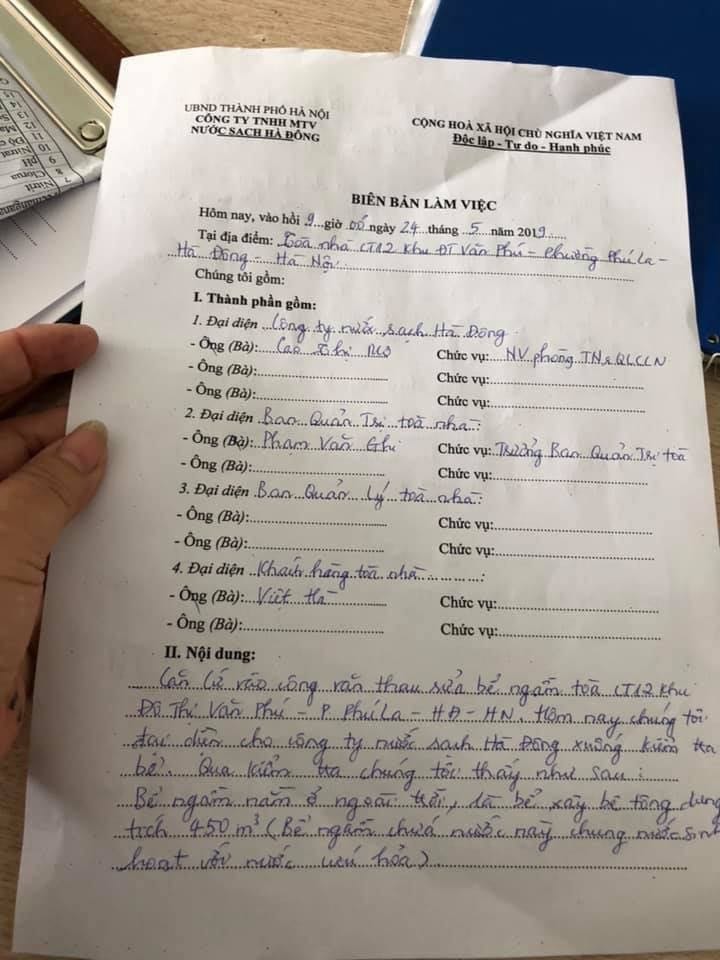 UBND THÀNH PHỐ HÀ NỘI
CÔNG TY TNHH MTV
NƯỚC SẠCH HÀ ĐÔNG
CỘNG HOÀ XÃ HỘI CHỦ NGHĨA VIỆT NAM
Độc lập - Tự do - Hạnh phúc
BIÊN BẢN LÀM VIỆC
Hôm nay, vào hồi 9 giờ 00 ngày 24 tháng 5 năm 2019
Tại địa điểm: Toà nhà CT12 Khu ĐT Văn Phú - Phường Phú La -
Hà Đông - Hà Nội
Chúng tôi gồm:
I. Thành phần gồm:
1. Đại diện Công ty nước sạch Hà Đông
- Ông (Bà): Cao Thị Chức vụ: NV phòng TN & QLCLN
- Ông (Bà): Chức vụ:
- Ông (Bà): Chức vụ:
2. Đại diện Ban Quản Trị toà nhà:
- Ông (Bà): Phạm Văn Ghi Chức vụ: Trưởng Ban Quản Trị toà
- Ông (Bà): Chức vụ:
3. Đại diện Ban Quản Lý toà nhà:
- Ông (Bà): Chức vụ:
- Ông (Bà): Chức vụ:
4. Đại diện Khách hàng toà nhà :
- Ông (Bà): Việt Hà Chức vụ:
- Ông (Bà): Chức vụ:
II. Nội dung:
Căn cứ vào công văn thau rửa bể ngầm toà CT12 Khu
Đô Thị Văn Phú - P Phú La - HĐ - HN. Hôm nay chúng tôi
đại diện cho công ty nước sạch Hà Đông xuống kiểm tra
bể. Qua kiểm tra chúng tôi thấy như sau:
Bể ngầm nằm ở ngoài trời, là bể xây bê tông dung
tích 450 m³ (Bể ngầm chứa nước này chung nước sinh
hoạt với nước cứu hỏa)